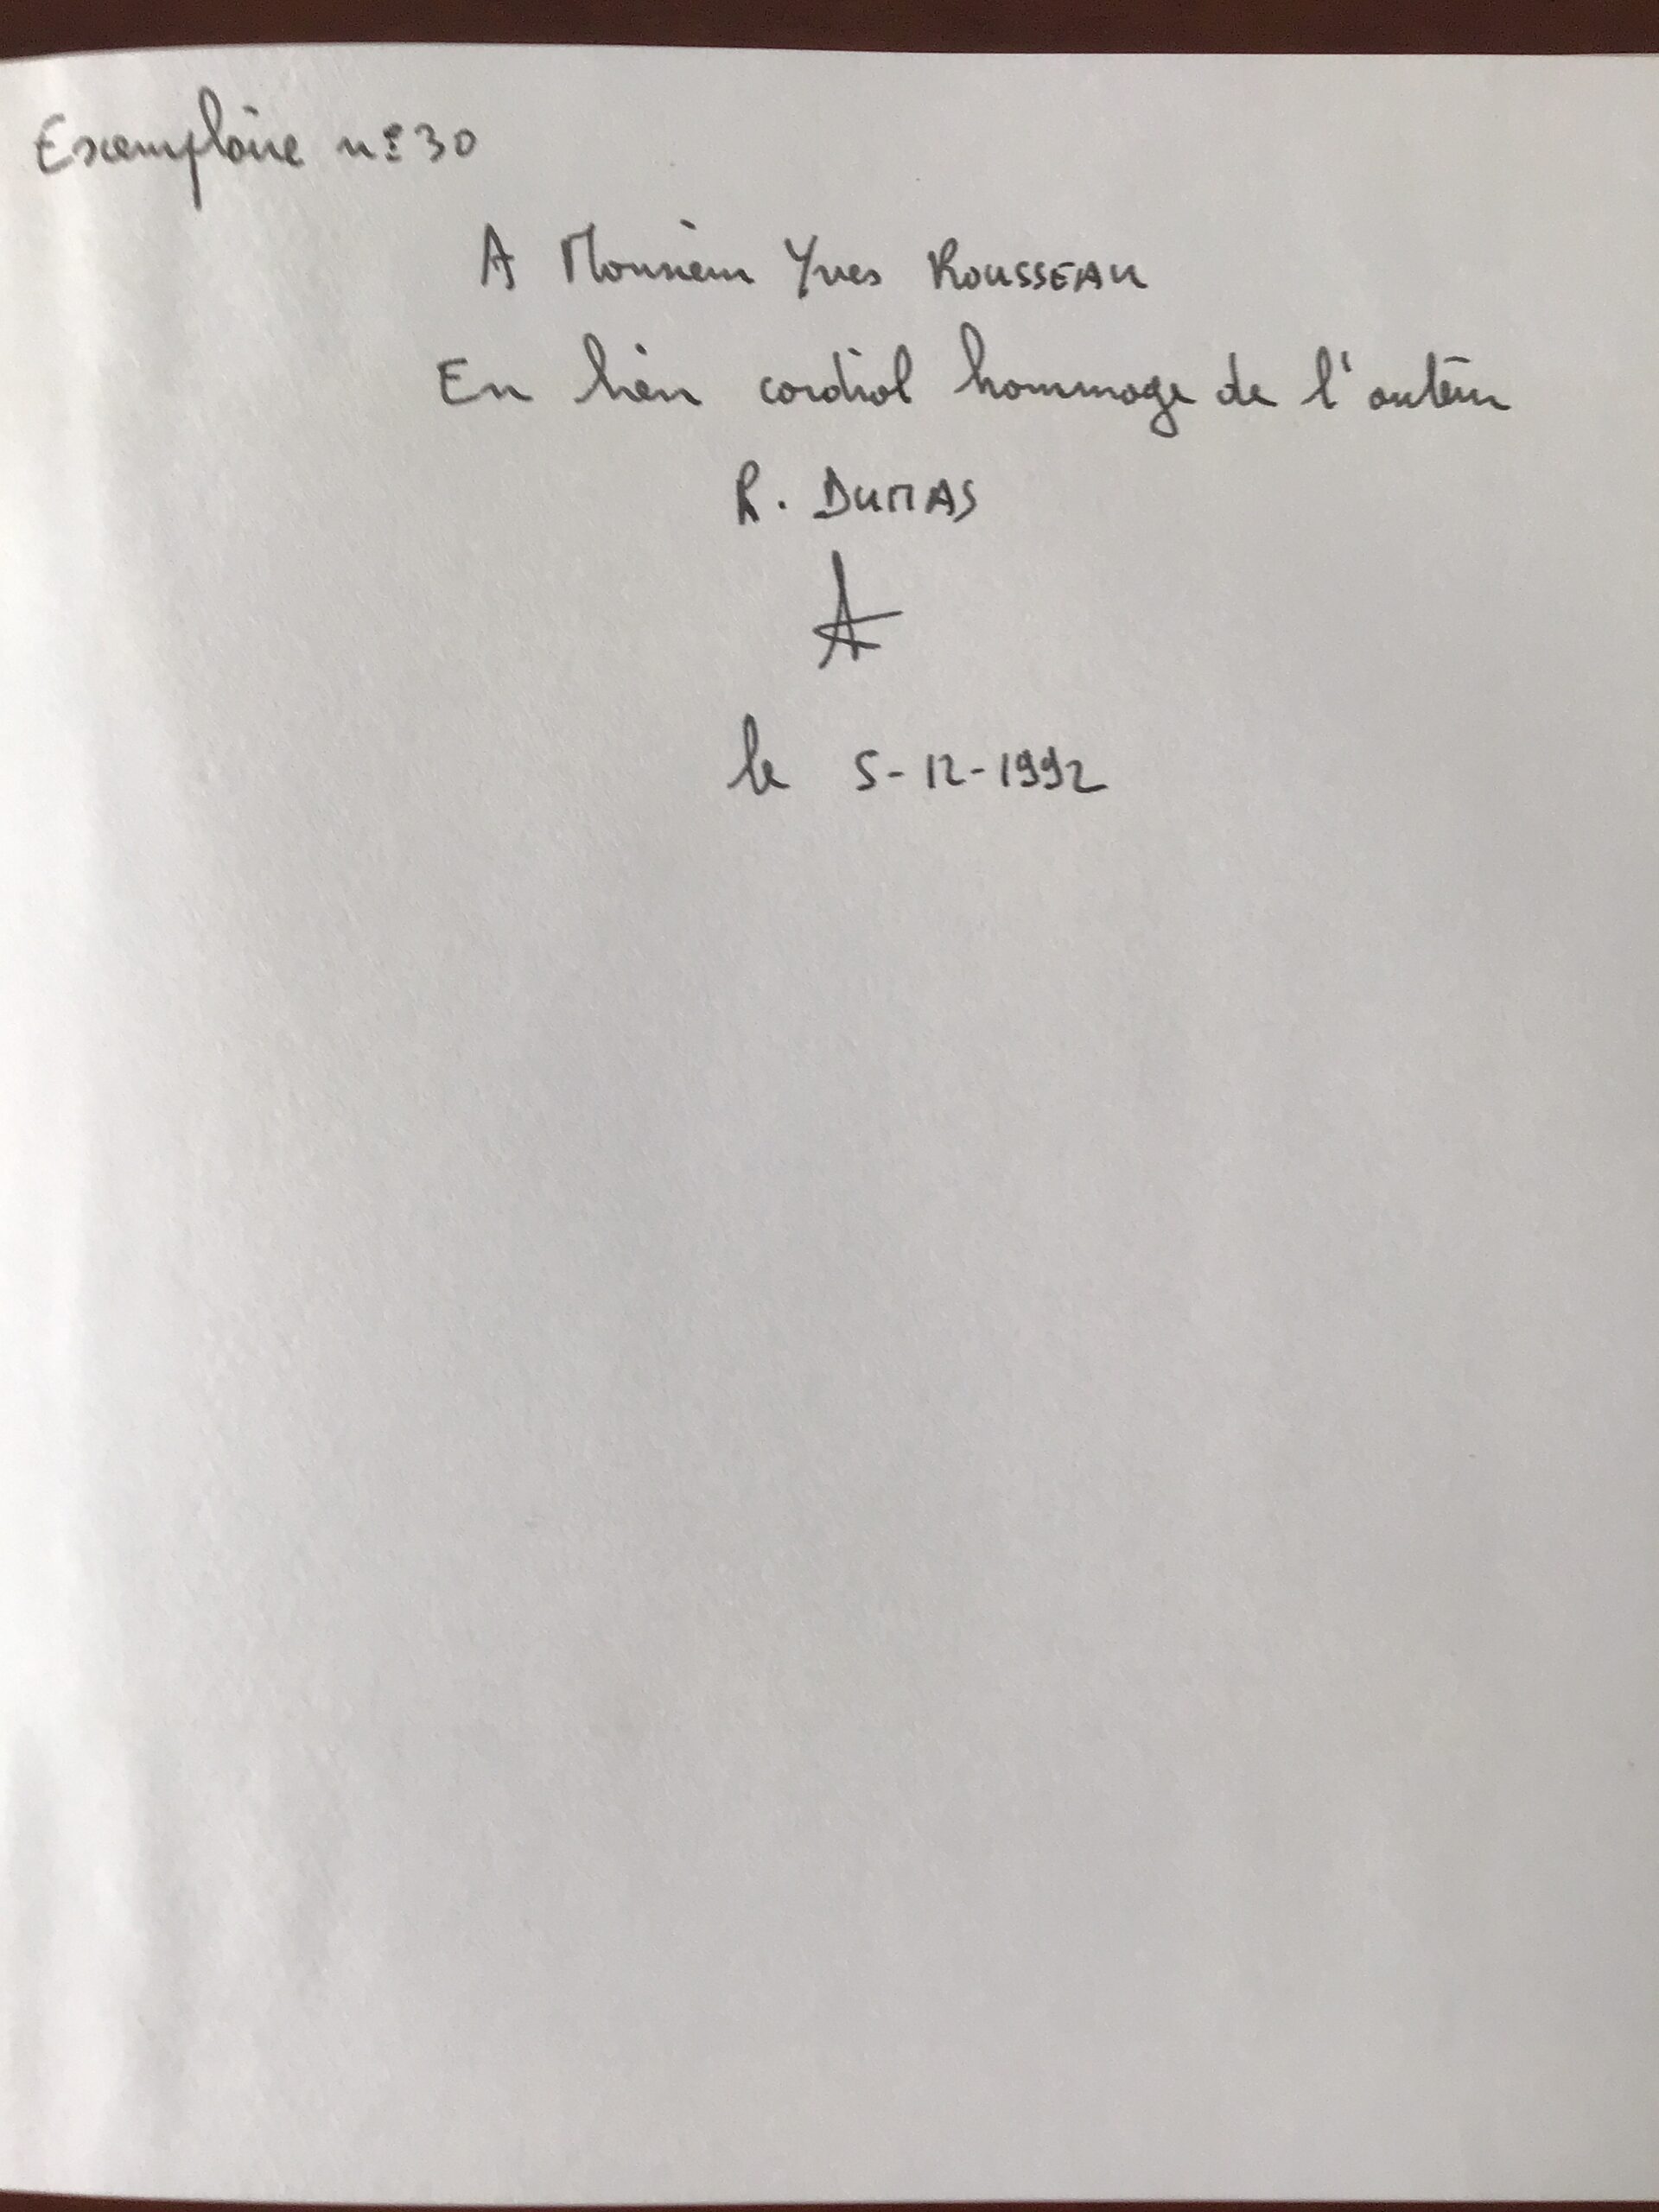 Exemplaire n° 30
A Monsieur Yves ROUSSEAU
En bien cordial hommage de l'auteur
R. DUMAS
le 5-12-1992